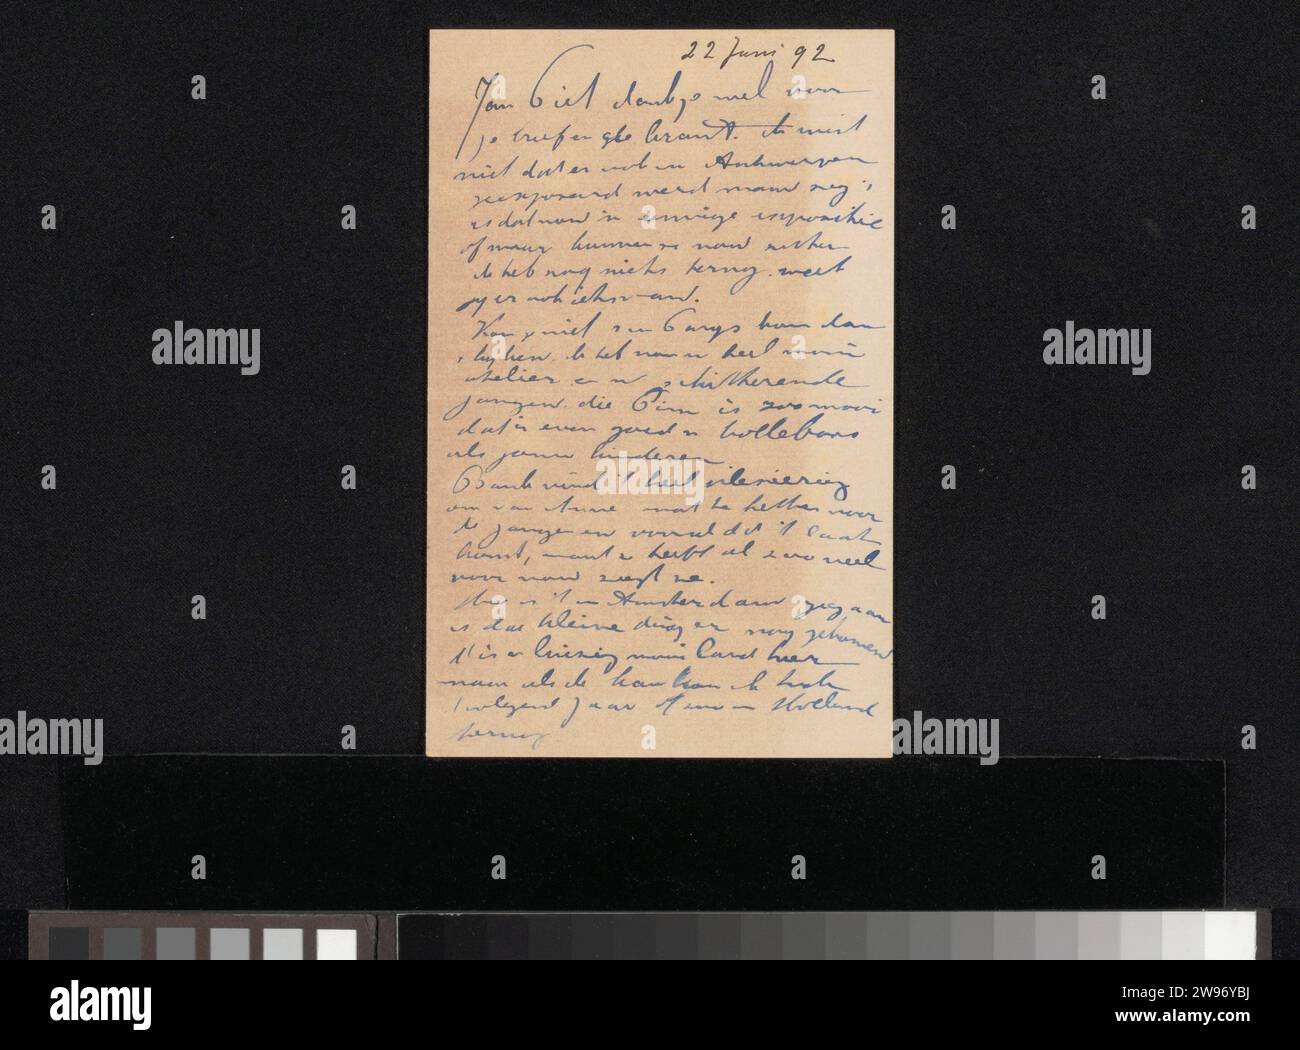 22 Juni 92
Jan Piet dankje wel voor
je brief en
niet dat er ook in Antwerpen
geexposeerd werd maar zeg's
is dat nou 'n eenige expositie
of maar kunnen ze nou
ik heb nog niets terug. weet
jy er ook iets van.
Kan je niet 's in Parys kom dan
's kyken. Ik heb nou 'n heel mooi
atelier en 'n schitterende
jongen. die Pim is zoo mooi
dat is even goed 'n bollebaas
als jouw kinderen
vind 't heel plesierig
om van Anne wat te hebben voor
de jongen en vooral dat 't laat
komt, want i heeft al zoo veel
voor nou zegt ze.
Hoe is 't in Amsterdam gegaan
is dat kleine ding er nog gekomen
't is 'n mooi land hier
maar als ik kan kom ik toch
volgend jaar in Holland
terug
a
alamy
Image ID: 2W96YBJ
www.alamy.com